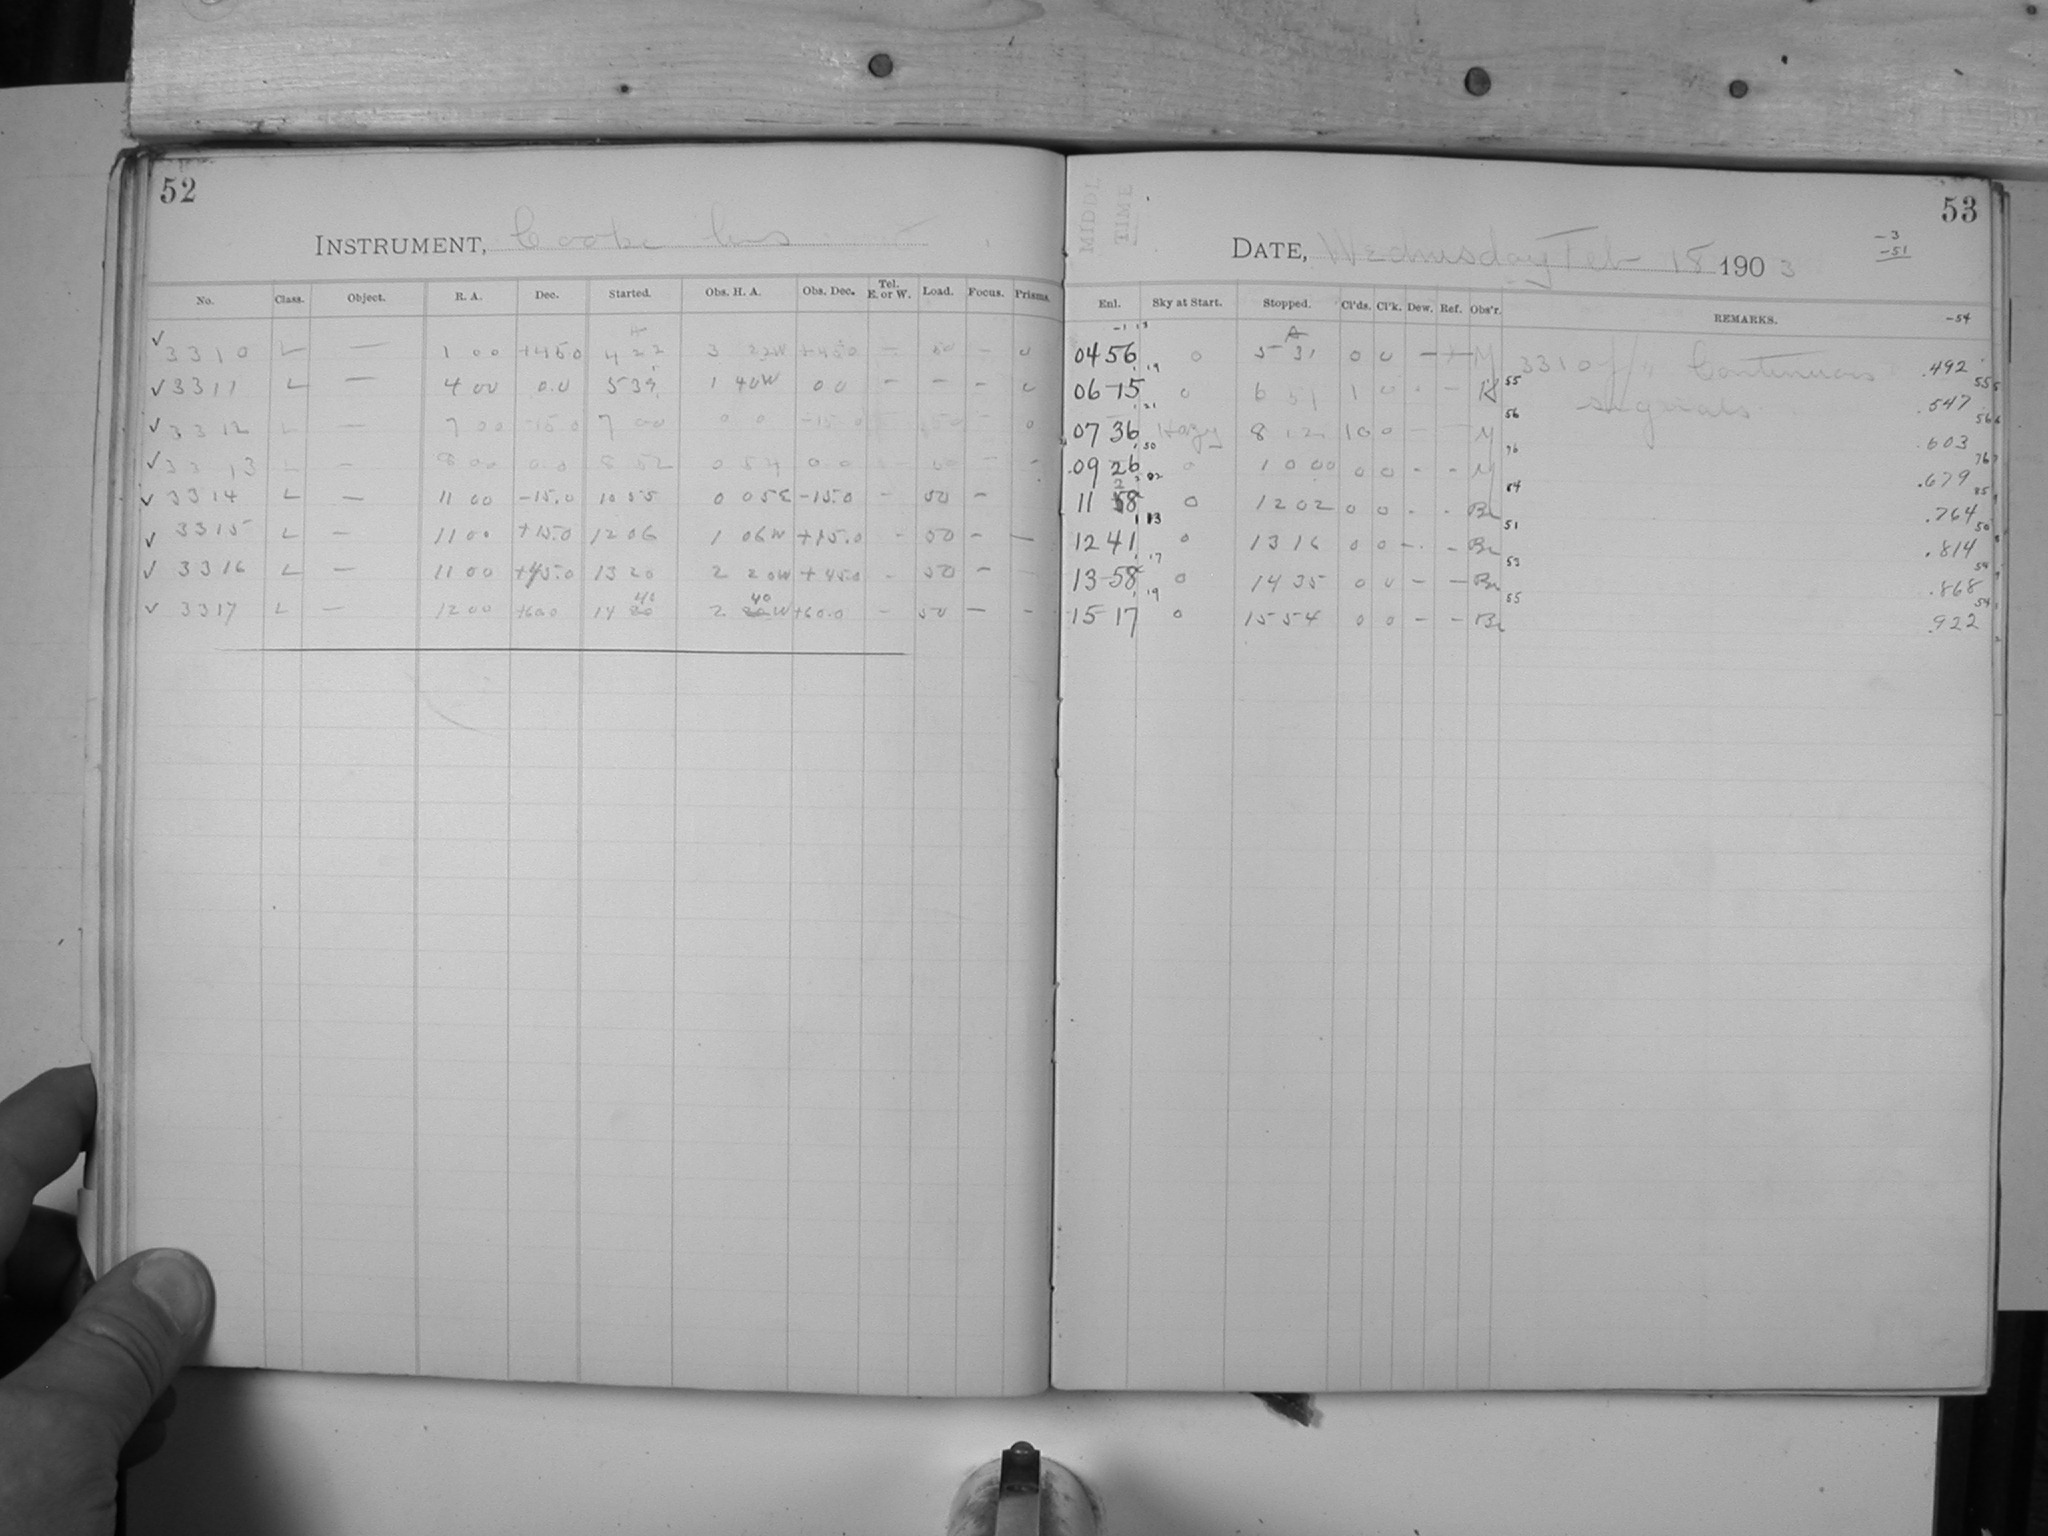 52
INSTRUMENT, Cooke lens
No. Class. Object. R. A. Dec. Started. Obs. H. A. Obs. Dec. Tel. E. or W. Load. Focus. Prisms.
✓ 3310 L — 1 00 +45.0 4 22 3 22W +45.0 — 50 — 0
✓ 3311 L — 4 00 0.0 5 39 1 40W 0 0 — — — 0
✓ 3312 L — 7 00 -15.0 7 00 0 0 -15.0 50 — 0
✓ 3313 L — 8 00 0.0 8 52 0 54 0.0 50 — —
✓ 3314 L — 11 00 -15.0 10 55 0 05E -15.0 - 50 —
✓ 3315 L — 11 00 +15.0 12 06 1 06W +15.0 - 50 — —
✓ 3316 L — 11 00 +45.0 13 20 2 20W +45.0 - 50 — —
40 40
✓ 3317 L — 12 00 +60.0 14 20 2 20W +60.0 — 50 — —
MIDDL
TIME
53
DATE, Wednesday Feb 18 1903
-3
-51
-54
Enl. Sky at Start. Stopped. Cl'ds. Cl'k. Dew. Ref. Obs'r. REMARKS.
-1 13
04 56 0 5 31 0 0 — — M 3310 ff " Continuous .492
19 55 55
06-15 0 6 51 1 0 - - signals .547
21 56 56
07 36 Hazy 8 12 10 0 — — M .603
50 76 76
09 26 0 10 00 0 0 - - M .679
02 84 85
11 58 0 12 02 0 0 - - Br .764
13 51 50
12 41 0 13 16 0 0 - - Br .814
17 53 54
13-58 0 14 35 0 0 — — Br .868
19 55 54
15-17 0 15 54 0 0 — — Br .922